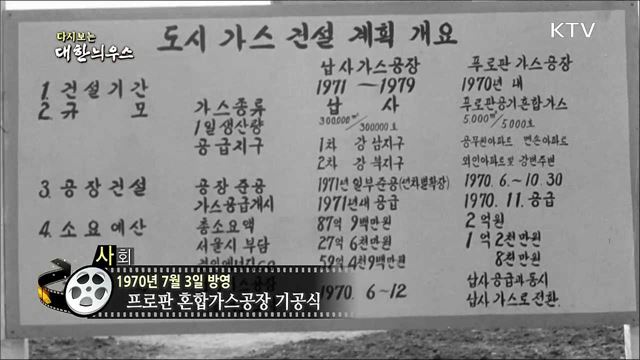 다시보는
대한늬우스
KTV
도시 가스 건설 계획 개요
납사가스공장 푸로판 가스공장
1. 건설기간 1971 ~ 1979 1970년 내
2. 규 모 가스종류 납 사 푸로판공기혼합가스
1일생산량 300,000㎥/300000호 5,000㎥/5000호
공급지구 1차 강남지구 공무원아파트 맨숀아파트
2차 강북지구 외인아파트및 강변주변
3. 공장건설 공장 준공 1971년 일부준공(연차별확장) 1970. 6. ~ 10. 30
가스공급개시 1971년내 공급 1970. 11. 공급
4. 소요예산 총소요액 87억 9백만원 2억원
서울시 부담 27억 6천만원 1억 2천만원
59억 4천9백만원 8천만원
납사공급과 동시
1970. 6~12 납사 가스로 전환.
사회
1970년 7월 3일 방영
프로판 혼합가스공장 기공식